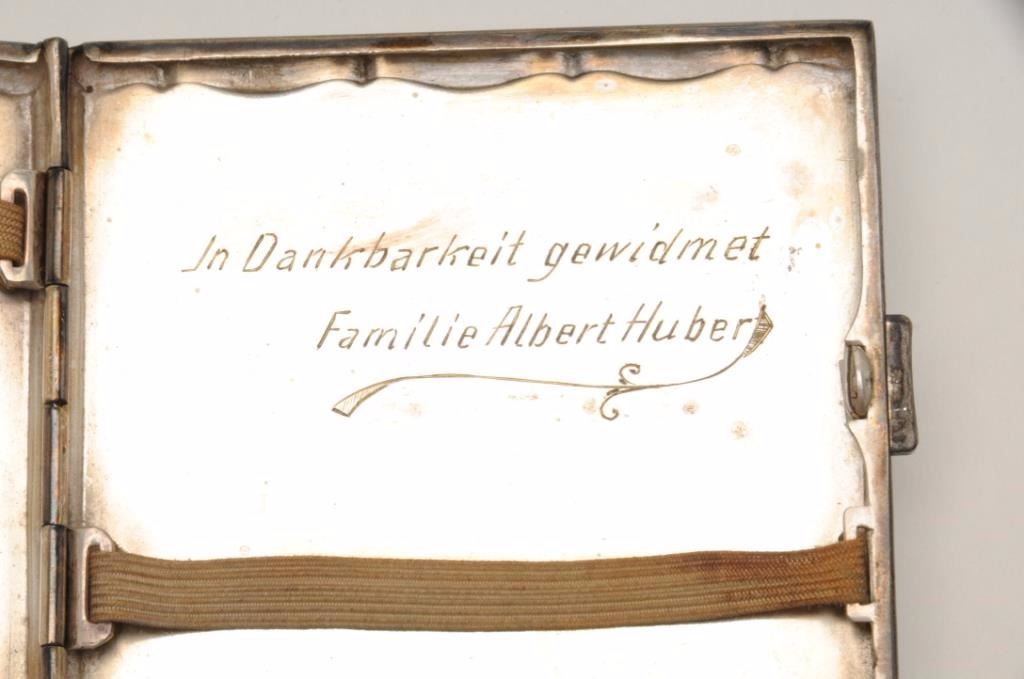 In Dankbarkeit gewidmet
Familie Albert Huber